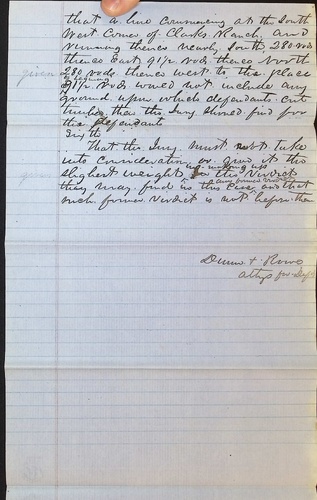 that a line commencing at the South
West Corner of Clarks Ranch, and
running thence nearly South 280 rods
thence East 91 1/2 rods thence North
given 280 rods thence west to the place
of beginning
91 1/2 rods would not include any
ground upon which defendants cut
timber than the Jury should find for
the defendants
Sixth
That the Jury must not take
into Consideration or give it the
slightest weight in
this Verdict
they may find in this case
any former verdict
and that
such former Verdict is not before them
Dunn & Rowe
Attys for Defts